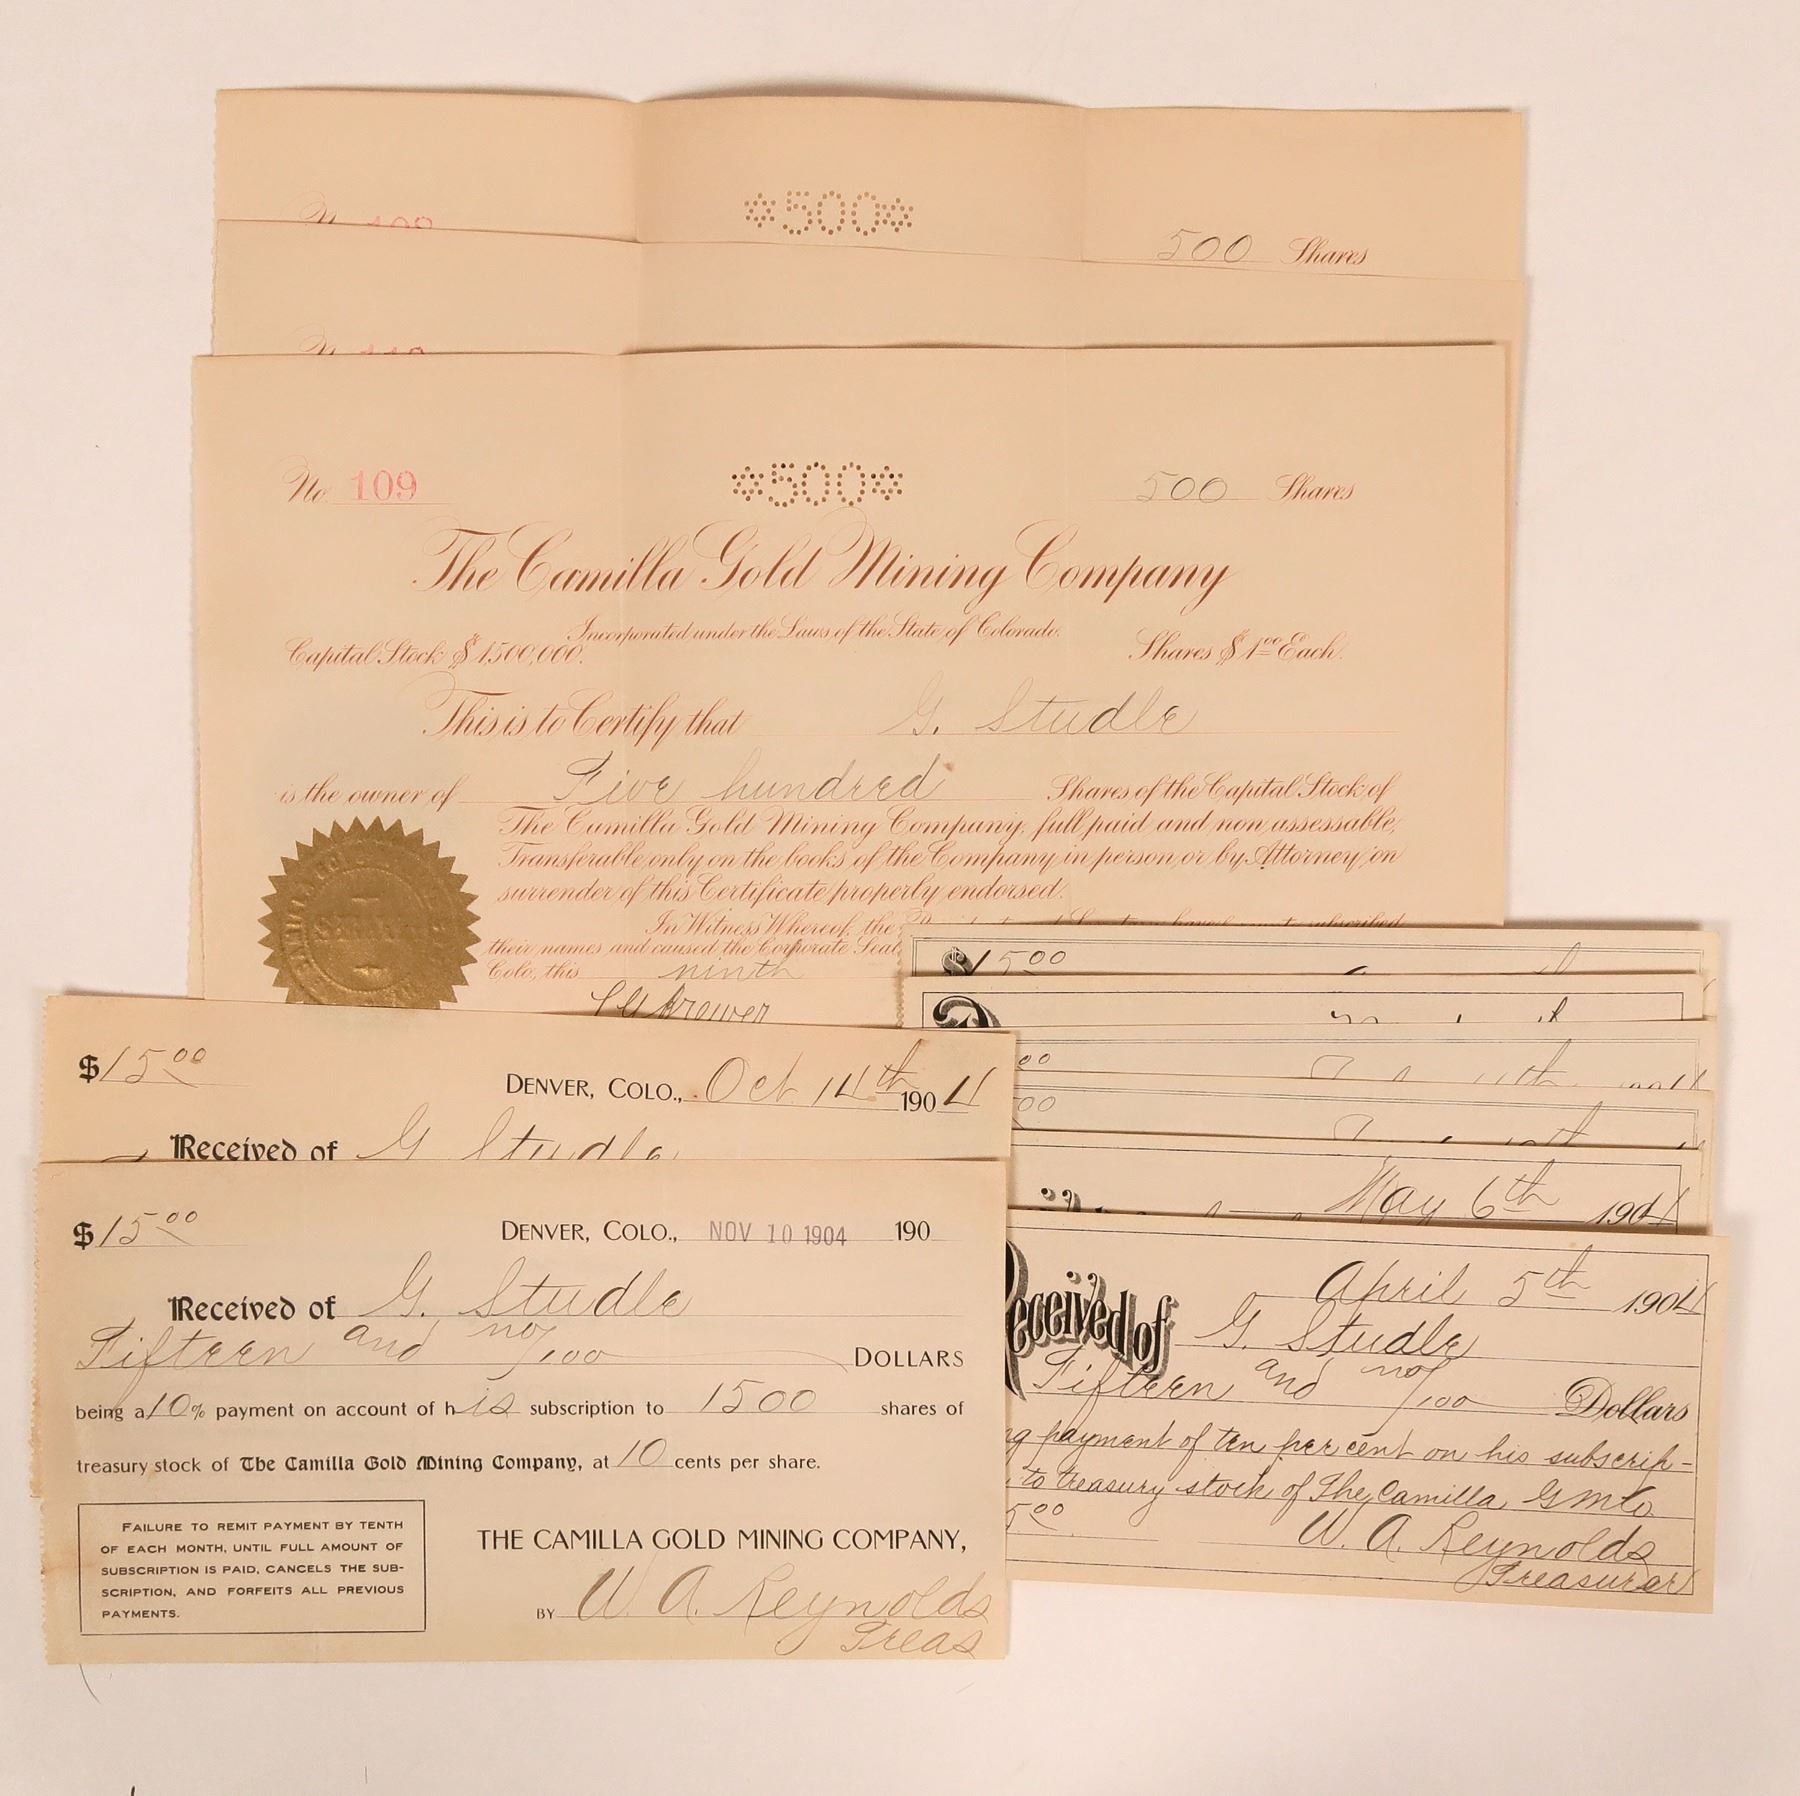 500
500 Shares
No 109
500
500 Shares
The Camilla Gold Mining Company
Incorporated under the Laws of the State of Colorado.
Capital Stock $1500,000.
Shares $1.00 Each.
This is to Certify that G. Studle
is the owner of Five hundred Shares of the Capital Stock of
The Camilla Gold Mining Company, full paid and non assessable,
Transferable only on the books of the Company in person or by Attorney on
surrender of this Certificate properly endorsed.
In Witness Whereof, the
their names and caused the Corporate Seal
Colo, this ninth
$15.00
DENVER, COLO., Oct 14th 1904
Received of G Studle
$15.00
DENVER, COLO., NOV 10 1904 190
Received of G. Studle
Fifteen and no/100 DOLLARS
being a 10% payment on account of his subscription to 1500 shares of
treasury stock of The Camilla Gold Mining Company, at 10 cents per share.
FAILURE TO REMIT PAYMENT BY TENTH
OF EACH MONTH, UNTIL FULL AMOUNT OF
SUBSCRIPTION IS PAID, CANCELS THE SUB-
SCRIPTION, AND FORFEITS ALL PREVIOUS
PAYMENTS.
THE CAMILLA GOLD MINING COMPANY,
BY W. A. Reynolds
Treas
$15.00
May 6th 1904
April 5th 1904
Received of G. Studle
Fifteen and no/100 Dollars
payment of ten per cent on his subscrip-
to treasury stock of The Camilla G M Co
5.00
W. A. Reynolds
Treasurer